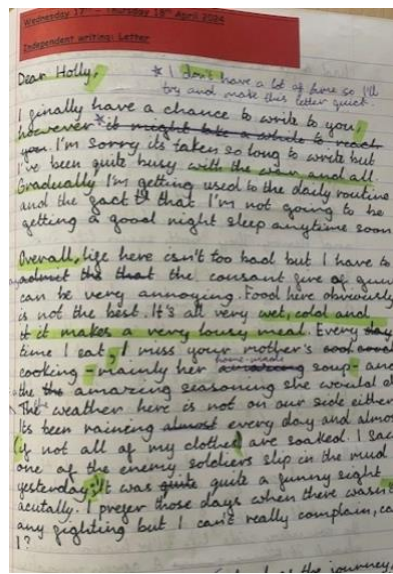 Wednesday 17th – Thursday 18th April 2024
Independent writing: Letter
Dear Holly,
* I don't have a lot of time so I'll
try and make this letter quick.
I finally have a chance to write to you,
however * it might take a while to reach
you. I'm sorry its taken so long to write but
I've been quite busy with the war and all.
Gradually I'm getting used to the daily routine
and the fact that I'm not going to be
getting a good night sleep anytime soon
Overall, life here isn't too bad but I have to
admit the that the consant fire of guns
can be very annoying. Food here obviously
is not the best. It's all very wet, cold and
it makes a very lousy meal. Every day
time I eat, I miss your mother's
home-made
cooking - mainly her amazing soup - and
the amazing seasoning she would
The weather here is not on our side either
Its been raining almost every day and almo
if not all of my clothes are soaked. I saw
one of the enemy soldiers slip in the mud
yesterday; It was quite quite a funny sight
acutally. I prefer those days when there wasn't
any fighting but I can't really complain, ca
I?
the journey,